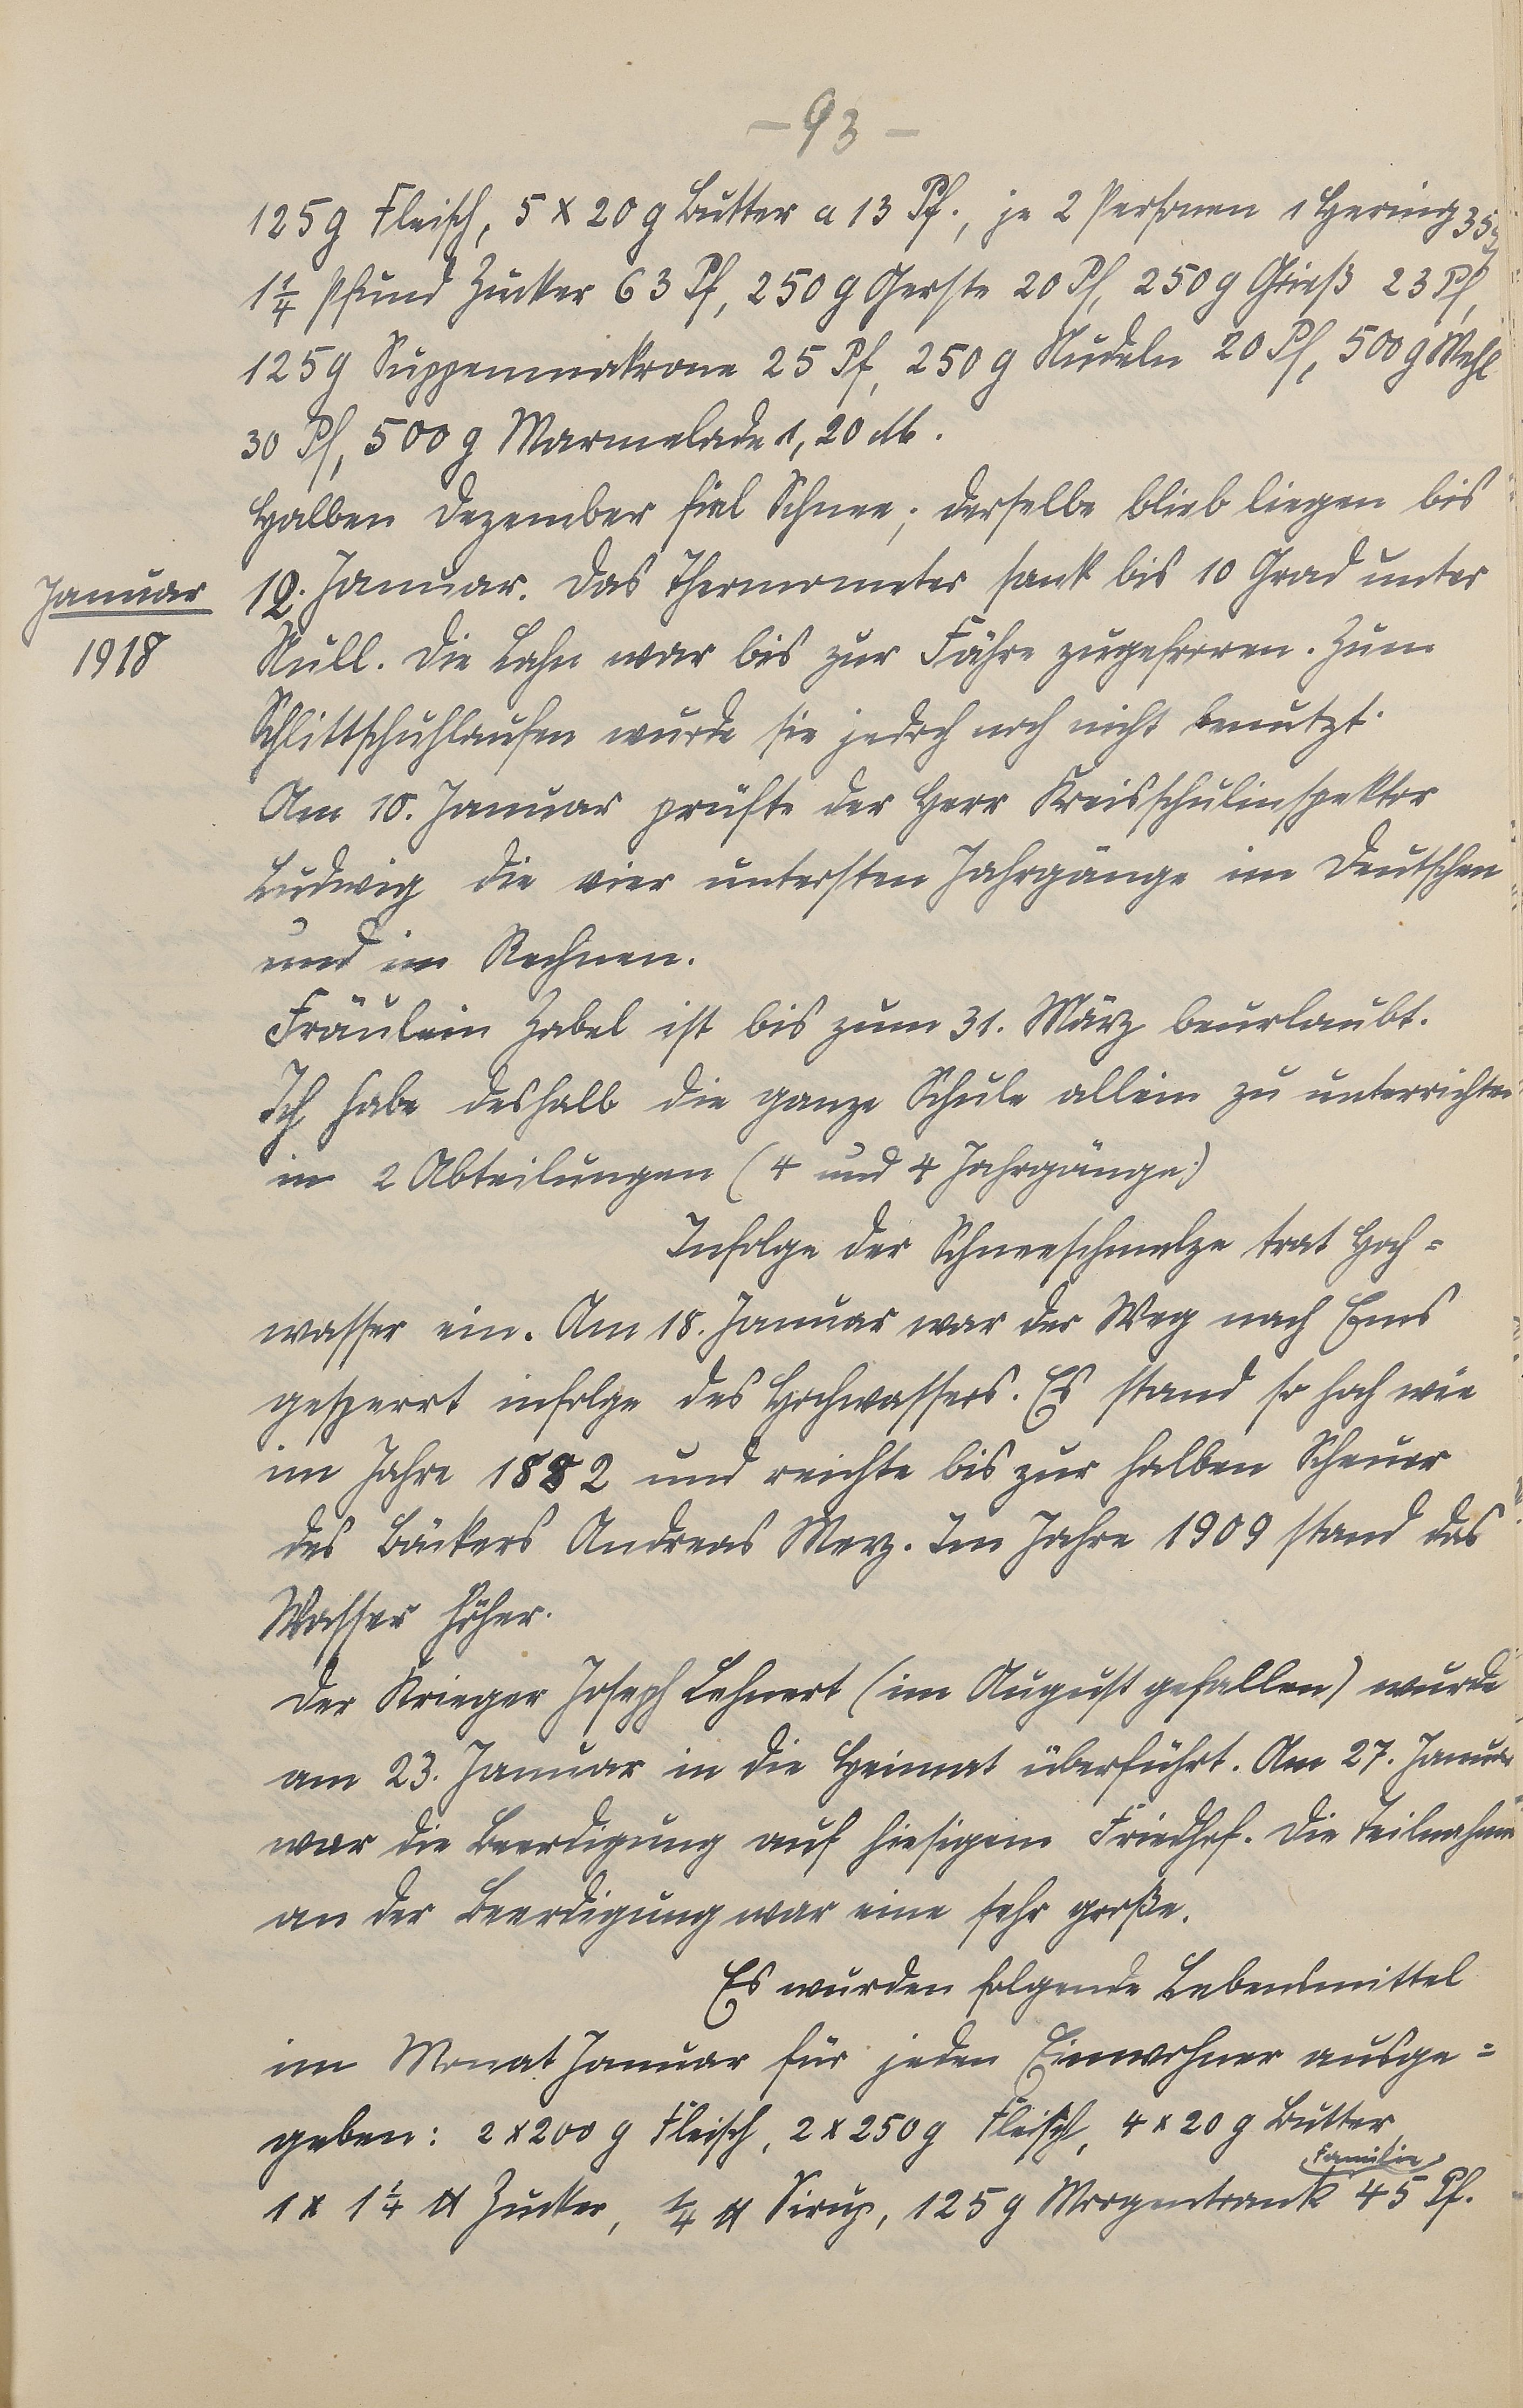 - 93 -
125 g Fleisch, 5 x 20 g Butter a 13 Pf., je 2 Personen 1 Hering 35 Pf,
1 1/4 Pfund Zucker 63 Pf, 250 g Gerste 20 Pf, 250 g Grieß 23 Pf,
125 g Suppenmakrone 25 Pf, 250 g Nudeln 20 Pf, 500 g Mehl
30 Pf, 500 g Marmelade 1,20 M.
Halben Dezember fiel Schnee; derselbe blieb liegen bis
Januar
1918
12. Januar. Das Thermometer sank bis 10 Grad unter
Null. Die Lahn war bis zur Fähre zugefroren. Zum
Schlittschuhlaufen wurde sie jedoch noch nicht benutzt.
Am 10. Januar prüfte der Herr Kreisschulinspektor
Ludwig die vier untersten Jahrgänge im Deutschen
und im Rechnen.
Fräulein Zabel ist bis zum 31. März beurlaubt.
Ich habe deshalb die ganze Schule allein zu unterrichten
in 2 Abteilungen (4 und 4 Jahrgänge)
Infolge der Schneeschmelze trat Hoch=
wasser ein. Am 18. Januar war der Weg nach Ems
gesperrt infolge des Hochwassers. Es stand so hoch wie
im Jahre 1882 und reichte bis zur halben Scheuer
des Bäckers Andreas Merz. Im Jahre 1909 stand das
Wasser höher.
Der Krieger Joseph Lehnert (im August gefallen) wurde
am 23. Januar in die Heimat überführt. Am 27. Januar
war die Beerdigung auf hiesigem Friedhof. Die Teilnahme
an der Beerdigung war eine sehr große.
Es wurden folgende Lebensmittel
im Monat Januar für jeden Einwohner ausge=
geben: 2 x 200 g Fleisch, 2 x 250 g Fleisch, 4 x 20 g Butter
Familie
1 x 1 1/4 ℔ Zucker, 1/4 ℔ Sirup, 125 g Morgentrank 45 Pf.